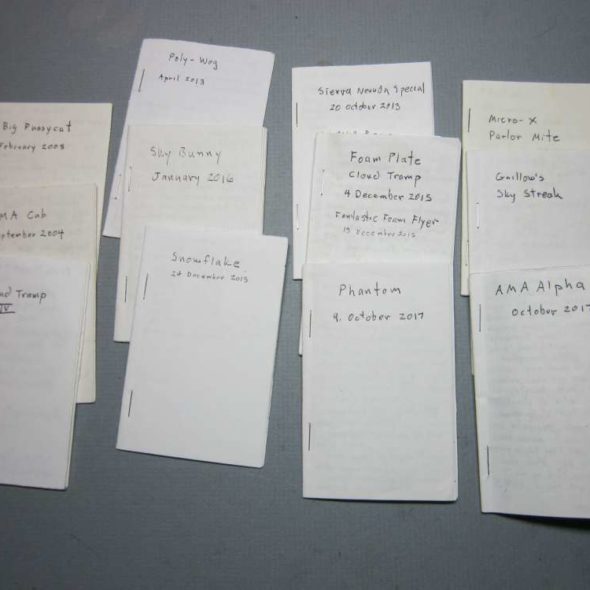 Big Pussycat
February 2005
MA Cub
September 2004
Cloud Tramp
IV
Poly-Wog
April 2013
Sky Bunny
January 2016
Snowflake
24 December 2015
Sierra Nevada Special
20 October 2013
Foam Plate
Cloud Tramp
4 December 2015
Fantastic Foam Flyer
19 December 2015
Phantom
9. October 2017
Micro-X
Parlor Mite
Guillow's
Sky Streak
AMA Alpha
October 2017